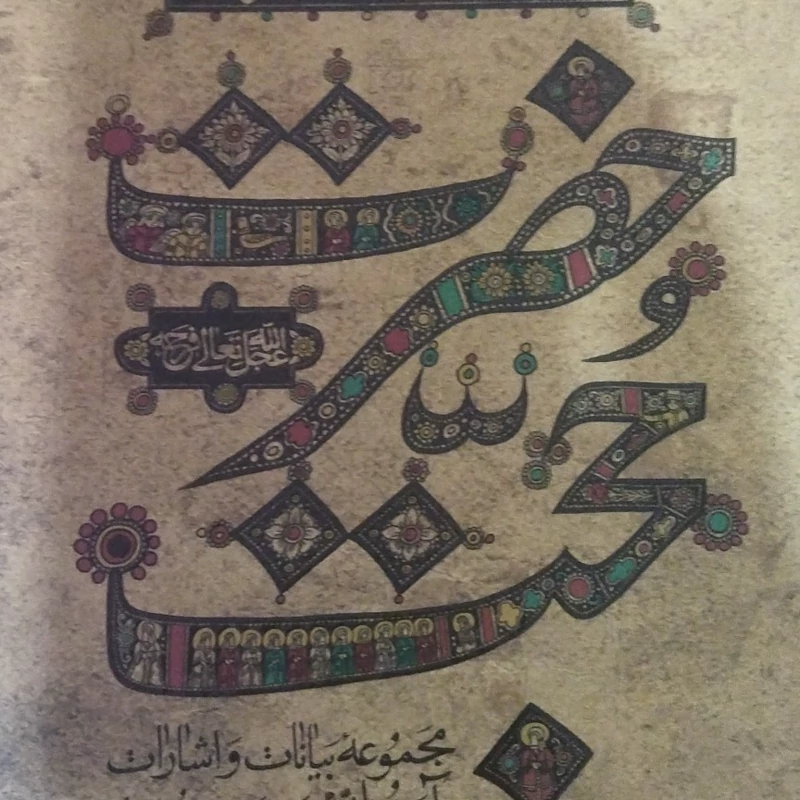 حضرت
عجل الله تعالی فرجه
حجت
مجموعهٔ بیانات و اشارات